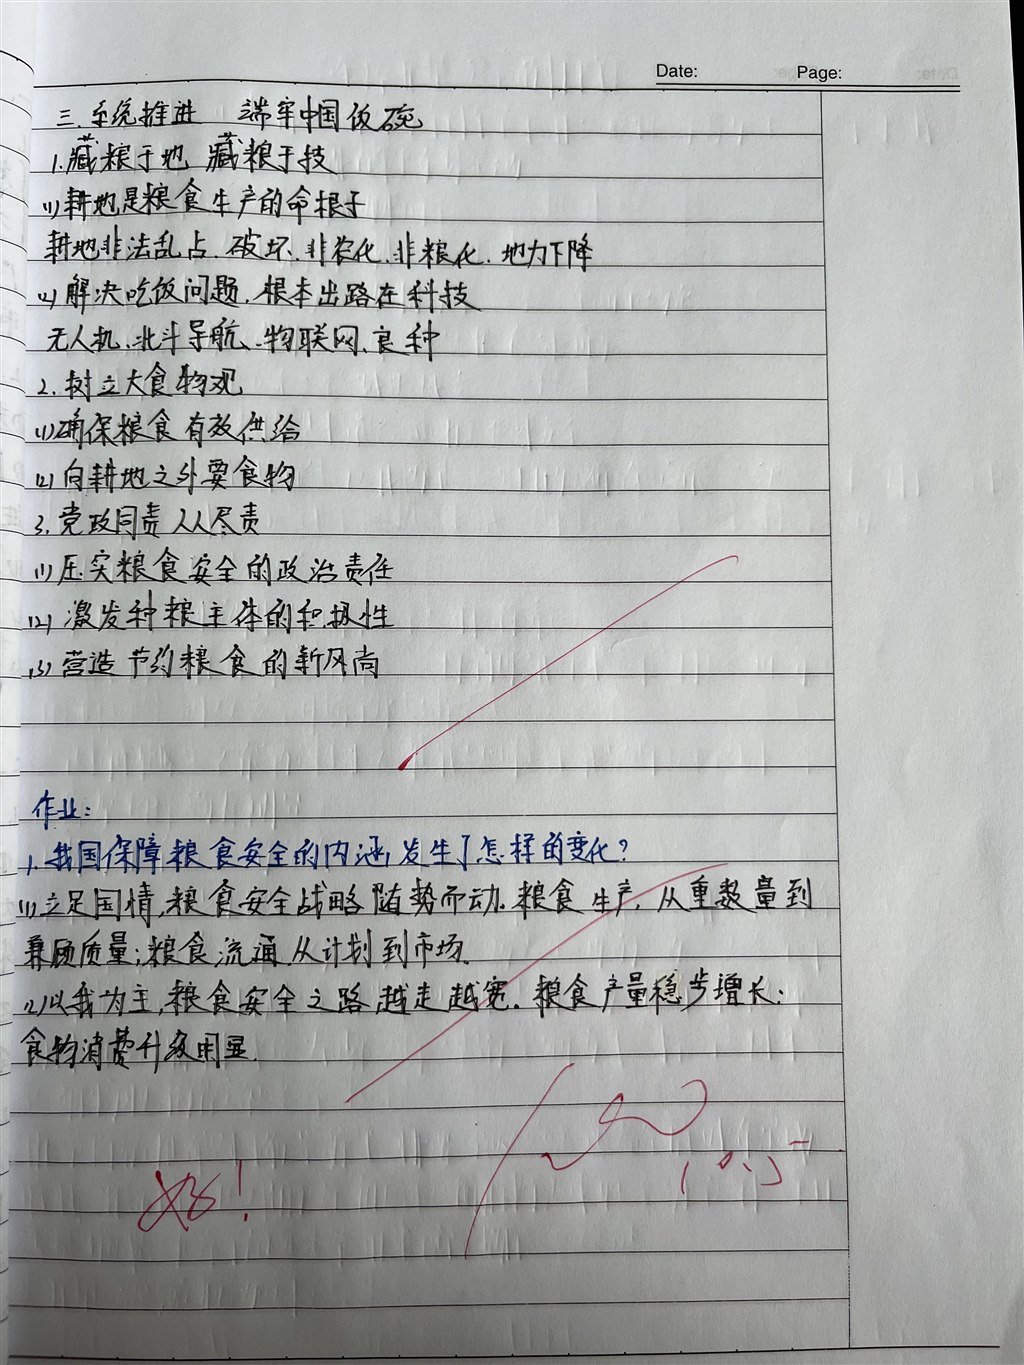 Date: Page:
三.系统推进 端牢中国饭碗
1.藏粮于地 藏粮于技
(1)耕地是粮食生产的命根子
耕地非法乱占、破坏、非农化、非粮化、地力下降
(2)解决吃饭问题,根本出路在科技
无人机、北斗导航、物联网、良种
2.树立大食物观
(1)确保粮食有效供给
(2)向耕地之外要食物
3.党政同责 人人尽责
(1)压实粮食安全的政治责任
(2)激发种粮主体的积极性
(3)营造节约粮食的新风尚
作业:
1.我国保障粮食安全的内涵,发生了怎样的变化?
(1)立足国情,粮食安全战略随势而动.粮食生产,从重数量到
兼顾质量;粮食流通,从计划到市场.
(2)以我为主,粮食安全之路越走越宽.粮食产量稳步增长;
食物消费升级明显.
好!
10.5